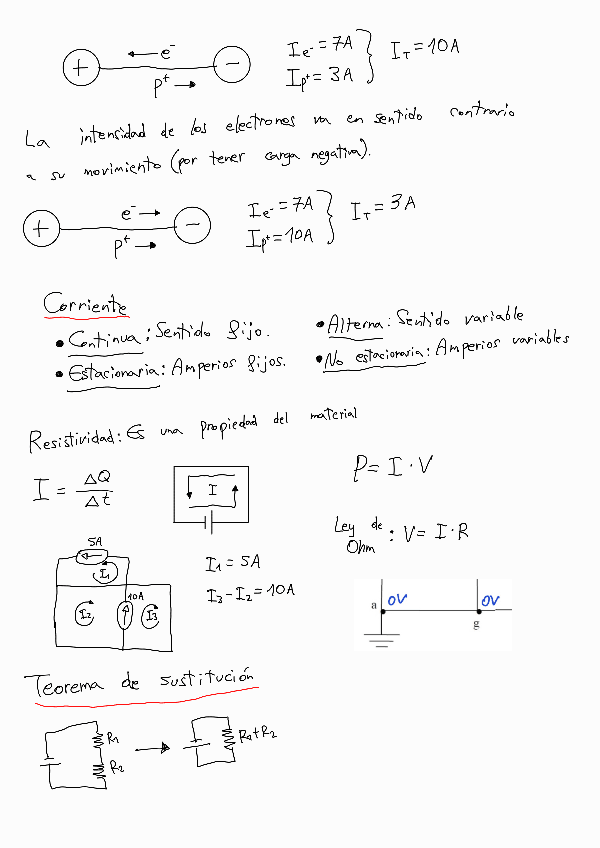 + ← e⁻ −
p⁺ →
Ie⁻ = 7A
Ip⁺ = 3A
I_T = 10A
La intensidad de los electrones va en sentido contrario
a su movimiento (por tener carga negativa).
+ e⁻ → −
p⁺ →
Ie⁻ = 7A
Ip⁺ = 10A
I_T = 3A
Corriente
• Continua: Sentido fijo.
• Alterna: Sentido variable
• Estacionaria: Amperios fijos.
• No estacionaria: Amperios variables
Resistividad: Es una propiedad del material
I = ΔQ / Δt
I
P = I · V
Ley de Ohm: V = I·R
5A
I₁
I₂
10A
I₃
I₁ = 5A
I₃ - I₂ = 10A
a 0V
0V
g
Teorema de sustitución
R₁
R₂
R₁+R₂